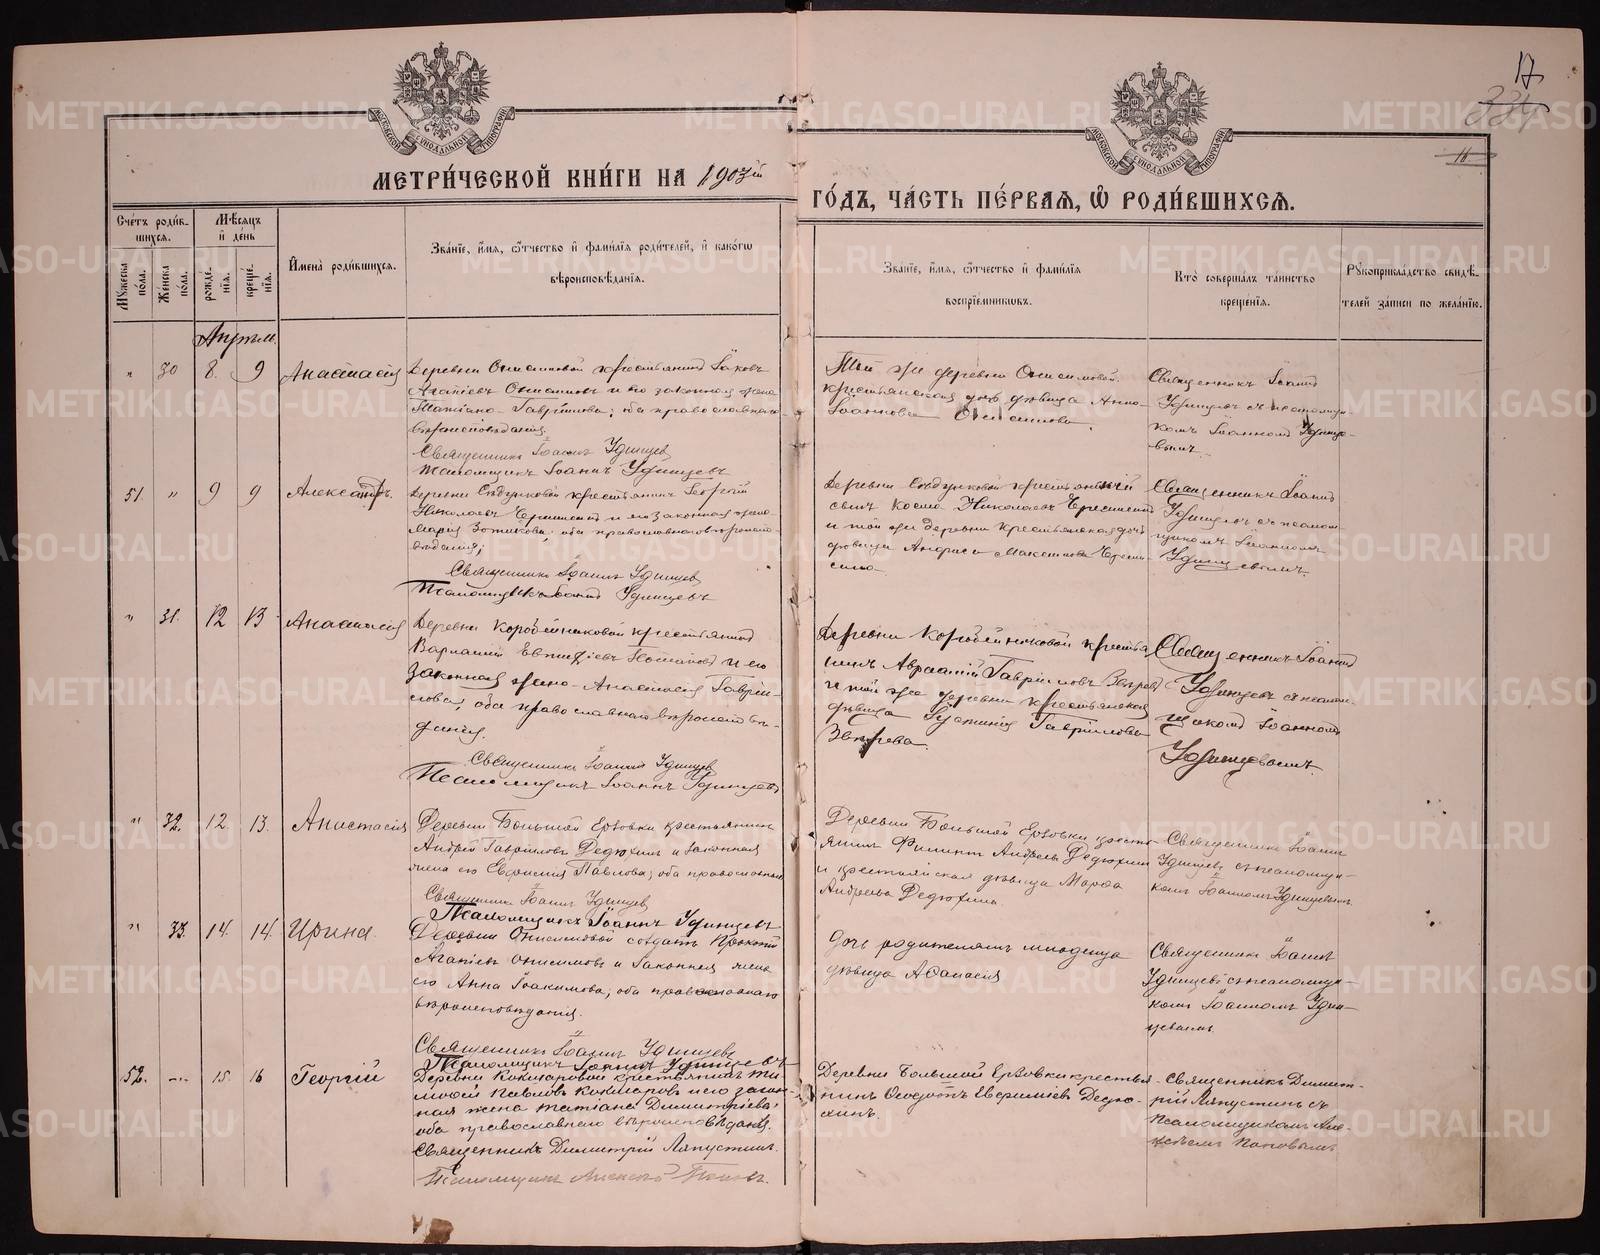 METRIKI.GASO-URAL.RU
МОСКОВСКОЙ СѴНОДАЛЬНОЙ ТИПОГРАФІИ
МОСКОВСКОЙ СѴНОДАЛЬНОЙ ТИПОГРАФІИ
17
334
16
МЕТРИ́ЧЕСКОЙ КНИ́ГИ НА 1903й
ГО́ДЪ, ЧА́СТЬ ПЕ́РВАЯ, Ѡ҆ РОДИ́ВШИХСЯ.
Сче́тъ роди́вшихся.
Му́жеска по́ла.
Же́нска по́ла.
Мѣ́сяцъ и҆ де́нь
рожде́нія.
креще́нія.
И҆мена̀ роди́вшихся.
Зва́ніе, и҆́мя, ѻ҆́тчество и҆ фами́лія роди́телей, и҆ како́гѡ
вѣроисповѣ́данія.
Зва́ніе, и҆́мя, ѻ҆́тчество и҆ фами́лія
воспріе́мниковъ.
Кто̀ соверша́лъ та́инство
креще́нія.
Рꙋкоприкла́дство свидѣ́телей за́писи по жела́нію.
Апрѣль.
" 30 8. 9 Анастасія
Деревни Онисимовой крестьянинъ Іаковъ
Агапіевъ Онисимовъ и его законная жена
Татіана Гаврилова; оба православнаго
вѣроисповѣданія.
Священникъ Іоаннъ Удинцевъ
Псаломщикъ Іоаннъ Удинцевъ
Той же деревни Онисимовой
крестьянская дочь дѣвица Анна
Іоаннова Онисимова.
Священникъ Іоаннъ
Удинцевъ съ псаломщи-
комъ Іоанномъ Удинце-
вымъ.
51. " 9 9 Александръ.
крестьянинъ Георгій
Николаевъ и его законная жена
Марія оба православнаго вѣроиспо-
вѣданія;
Священникъ Іоаннъ Удинцевъ
Псаломщикъ Іоаннъ Удинцевъ
Николаевъ
и той же деревни крестьянская дочь
дѣвица Максимова
Священникъ Іоаннъ
Удинцевъ съ псалом-
щикомъ Іоанномъ
Удинцевымъ.
" 31. 12 13 Анастасія
Деревни Коробейниковой крестьянинъ
Варлаамъ и его
законная жена Анастасія Гаврі-
лова, оба православнаго вѣроисповѣ-
данія.
Священникъ Іоаннъ Удинцевъ
Псаломщикъ Іоаннъ Удинцевъ
Деревни Коробейниковой крестья
нинъ Гавріиловъ Звѣревъ
и той же деревни крестьянская
дѣвица Гавріилова
Звѣрева.
Священникъ Іоаннъ
Удинцевъ съ псалом-
щикомъ Іоанномъ
Удинцевымъ.
" 32. 12 13. Анастасія
Деревни Большой Ерзовки крестьянинъ
Андрей Гавриловъ Дедюхинъ и законная
жена его Павлова; оба православные
Священникъ Іоаннъ Удинцевъ
Псаломщикъ Іоаннъ Удинцевъ
Деревни Большой Ерзовки кресть-
янинъ Филиппъ Андреевъ Дедюхинъ
и крестьянская дѣвица Марѳа
Андреева Дедюхина.
Священникъ Іоаннъ
Удинцевъ съ псаломщи-
комъ Іоанномъ Удинцевымъ.
" 33. 14. 14. Ирина.
Деревни Онисимовой солдатъ Прокопій
Агапіевъ Онисимовъ и законная жена
его Анна Іоакимова; оба православнаго
вѣроисповѣданія.
Священникъ Іоаннъ Удинцевъ
Псаломщикъ Іоаннъ Удинцевъ
Дочь родителямъ младенца
дѣвица Аѳанасія
Священникъ Іоаннъ
Удинцевъ съ псаломщи-
комъ Іоанномъ Удин-
цевымъ.
52. -"- 15. 16 Георгій
Деревни Кокшаровой крестьянинъ Ти-
моѳей Павловъ Кокшаровъ и его закон-
ная жена Татіана Димитріева;
оба православнаго вѣроисповѣданія.
Священникъ Димитрій Ляпустинъ.
Псаломщикъ Алексѣй Поповъ.
Деревни Большой Ерзовки крестья-
нинъ Ѳеодотъ Дедю-
хинъ.
Священникъ Димит-
рій Ляпустинъ съ
псаломщикомъ Але-
ксѣемъ Поповымъ